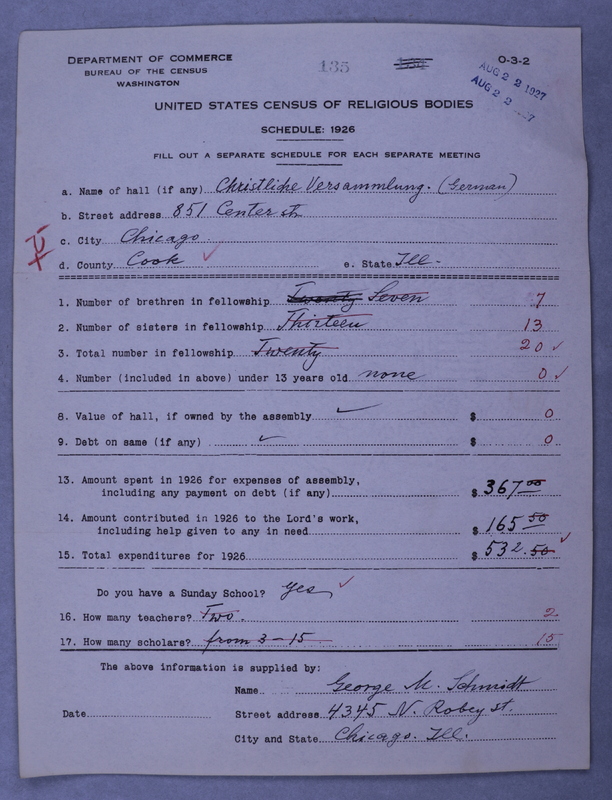 DEPARTMENT OF COMMERCE
BUREAU OF THE CENSUS
WASHINGTON
135
O-3-2
AUG 22 1927
AUG 22
UNITED STATES CENSUS OF RELIGIOUS BODIES
SCHEDULE: 1926
FILL OUT A SEPARATE SCHEDULE FOR EACH SEPARATE MEETING
a. Name of hall (if any) Christliche Versammlung. (German)
b. Street address 851 Center st
c. City Chicago
d. County Cook e. State Ill.
1. Number of brethren in fellowship Twenty Seven 7
2. Number of sisters in fellowship Thirteen 13
3. Total number in fellowship Twenty 20
4. Number (included in above) under 13 years old none 0
8. Value of hall, if owned by the assembly $ 0
9. Debt on same (if any) $ 0
13. Amount spent in 1926 for expenses of assembly,
including any payment on debt (if any) $ 367.00
14. Amount contributed in 1926 to the Lord's work,
including help given to any in need $ 165 50
15. Total expenditures for 1926 $ 532.50
Do you have a Sunday School? Yes
16. How many teachers? Two. 2
17. How many scholars? from 3-15 15
The above information is supplied by:
Name George M. Schmidt
Date Street address 4345 N. Robey st.
City and State Chicago. Ill.